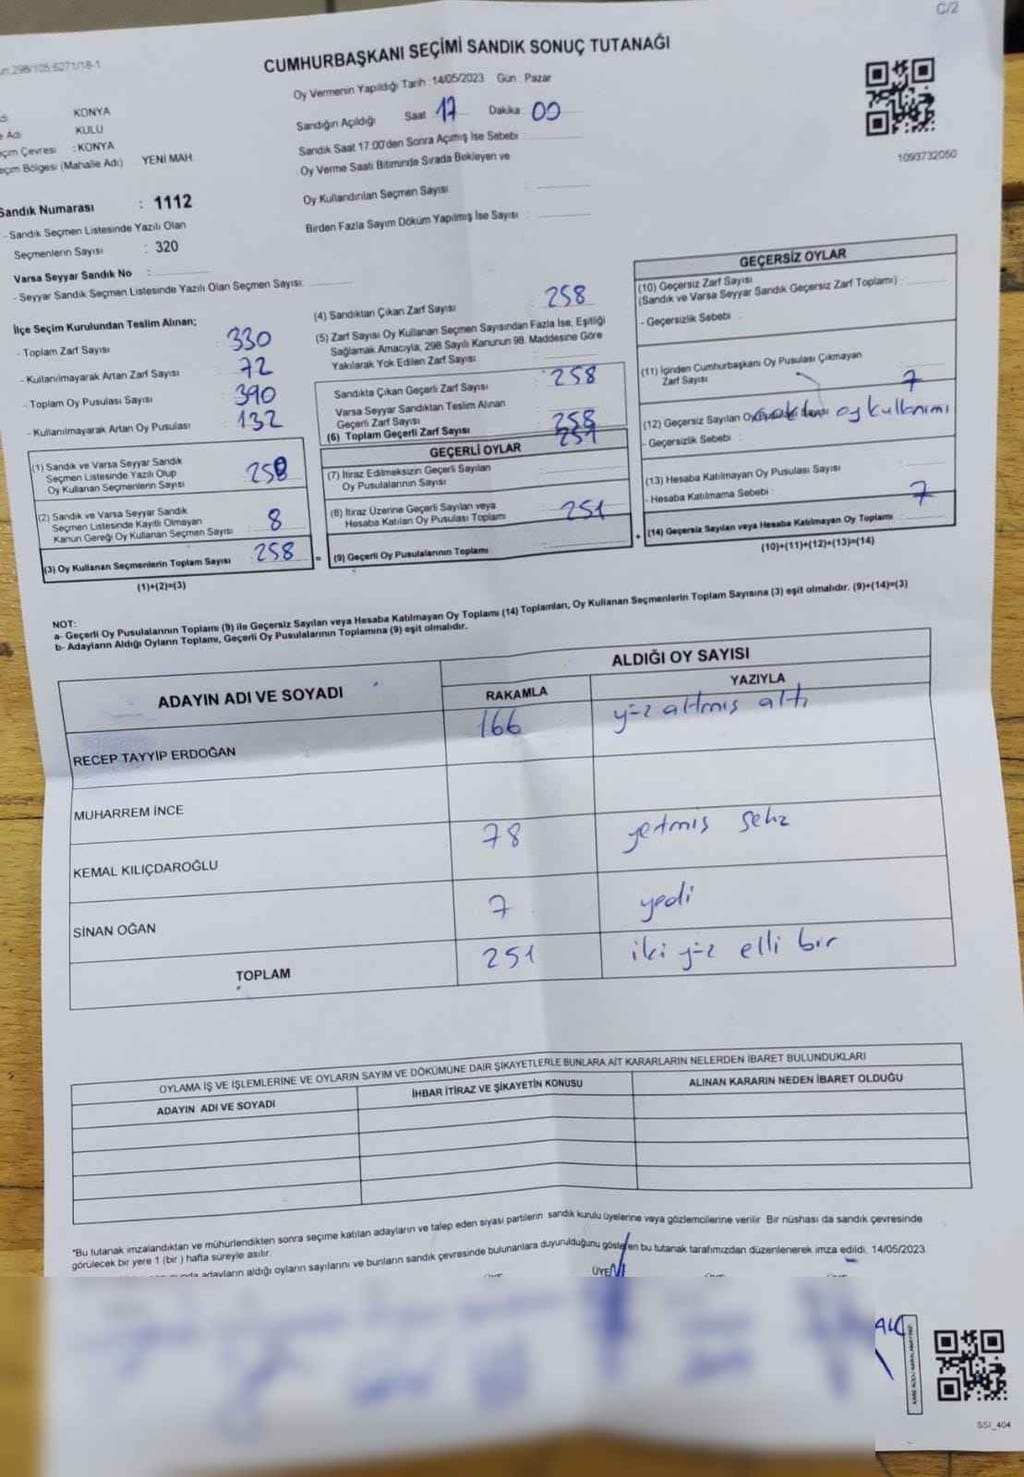 C/2
CUMHURBAŞKANI SEÇİMİ SANDIK SONUÇ TUTANAĞI
Oy Vermenin Yapıldığı Tarih : 14/05/2023 Gün : Pazar
Sandığın Açıldığı Saat 17 Dakika : 00
Sandık Saat 17:00'den Sonra Açımış İse Sebebi :
Oy Verme Saati Bitiminde Sırada Bekleyen ve
Oy Kullandırılan Seçmen Sayısı :
Birden Fazla Sayım Döküm Yapılmış İse Sayısı :
1093732050
KONYA
Adı KULU
Çevresi : KONYA
Bölgesi (Mahalle Adı) YENİ MAH.
Sandık Numarası : 1112
- Sandık Seçmen Listesinde Yazılı Olan
Seçmenlerin Sayısı : 320
Varsa Seyyar Sandık No :
- Seyyar Sandık Seçmen Listesinde Yazılı Olan Seçmen Sayısı:
İlçe Seçim Kurulundan Teslim Alınan;
- Toplam Zarf Sayısı : 330
- Kullanılmayarak Artan Zarf Sayısı : 72
- Toplam Oy Pusulası Sayısı : 390
- Kullanılmayarak Artan Oy Pusulası : 132
(1) Sandık ve Varsa Seyyar Sandık
Seçmen Listesinde Yazılı Olup
Oy Kullanan Seçmenlerin Sayısı 250
(2) Sandık ve Varsa Seyyar Sandık
Seçmen Listesinde Kayıtlı Olmayan
Kanun Gereği Oy Kullanan Seçmen Sayısı : 8
(3) Oy Kullanan Seçmenlerin Toplam Sayısı 258
(1)+(2)=(3)
(4) Sandıktan Çıkan Zarf Sayısı : 258
(5) Zarf Sayısı Oy Kullanan Seçmen Sayısından Fazla İse, Eşitliği
Sağlamak Amacıyla, 298 Sayılı Kanunun 98. Maddesine Göre
Yakılarak Yok Edilen Zarf Sayısı :
Sandıkta Çıkan Geçerli Zarf Sayısı : 258
Varsa Seyyar Sandıktan Teslim Alınan
Geçerli Zarf Sayısı :
(6) Toplam Geçerli Zarf Sayısı : 258
GEÇERLİ OYLAR
(7) İtiraz Edilmeksizin Geçerli Sayılan
Oy Pusulalarının Sayısı 251
(8) İtiraz Üzerine Geçerli Sayılan veya
Hesaba Katılan Oy Pusulası Toplamı
(9) Geçerli Oy Pusulalarının Toplamı 251
GEÇERSİZ OYLAR
(10) Geçersiz Zarf Sayısı
(Sandık ve Varsa Seyyar Sandık Geçersiz Zarf Toplamı) :
- Geçersizlik Sebebi :
(11) İçinden Cumhurbaşkanı Oy Pusulası Çıkmayan
Zarf Sayısı :
(12) Geçersiz Sayılan 7
- Geçersizlik Sebebi : oy kullanımı
(13) Hesaba Katılmayan Oy Pusulası Sayısı :
- Hesaba Katılmama Sebebi :
(14) Geçersiz Sayılan veya Hesaba Katılmayan Oy Toplamı : 7
(10)+(11)+(12)+(13)=(14)
NOT:
a- Geçerli Oy Pusulalarının Toplamı (9) ile Geçersiz Sayılan veya Hesaba Katılmayan Oy Toplamı (14) Toplamları, Oy Kullanan Seçmenlerin Toplam Sayısına (3) eşit olmalıdır. (9)+(14)=(3)
b- Adayların Aldığı Oyların Toplamı, Geçerli Oy Pusulalarının Toplamına (9) eşit olmalıdır.
ADAYIN ADI VE SOYADI ALDIĞI OY SAYISI
RAKAMLA YAZIYLA
RECEP TAYYİP ERDOĞAN 166 yüz altmış altı
MUHARREM İNCE
KEMAL KILIÇDAROĞLU 78 yetmiş sekiz
SİNAN OĞAN 7 yedi
TOPLAM 251 iki yüz elli bir
OYLAMA İŞ VE İŞLEMLERİNE VE OYLARIN SAYIM VE DÖKÜMÜNE DAİR ŞİKAYETLERLE BUNLARA AİT KARARLARIN NELERDEN İBARET BULUNDUKLARI
ADAYIN ADI VE SOYADI İHBAR İTİRAZ VE ŞİKAYETİN KONUSU ALINAN KARARIN NEDEN İBARET OLDUĞU
"Bu tutanak imzalandıktan ve mühürlendikten sonra seçime katılan adayların ve talep eden siyasi partilerin sandık kurulu üyelerine veya gözlemcilerine verilir. Bir nüshası da sandık çevresinde
görülecek bir yere 1 (bir) hafta süreyle asılır.
adayların aldığı oyların sayılarını ve bunların sandık çevresinde bulunanlara duyurulduğunu gösteren bu tutanak tarafımızdan düzenlenerek imza edildi. 14/05/2023
ÜYE
SSI_404